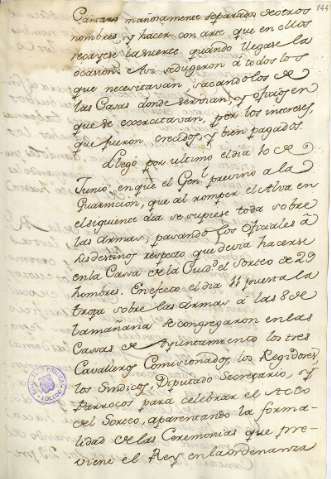 144
Cantaro mañosamente separados de otros
nombres, y hacer con arte que en ellos
recayese la suerte quando llegase la
ocasion. Asi redugeron á todos los
que necesitavan, sacandolos de
las Casas donde servian, y oficios en
que se exercitavan, por los intereses
que fueron, crecidos, y bien pagados.
Llegó por ultimo el dia 10 de
Junio, en que el Genl. previno a la
Guarnicion, que al romper el Alva en
el siguiente dia se supiese toda sobre
las Armas, pasando los oficiales á
sus destinos respecto que devia hacerse
en la Casa de la Ciudd. el Sorteo de 29
hombres. En efecto el dia 11 puesta la
tropa sobre las armas á las 8 de
la mañana se congregaron en las
Casas de Ayuntamiento los tres
Cavalleros Comisionados, los Regidores,
los Sindicos, Diputado Secretario, y
Parrocos para celebrar el Acto
del Sorteo, aparentando la forma-
lidad de las Ceremonias que pre-
viene el Rey en la ordenanza